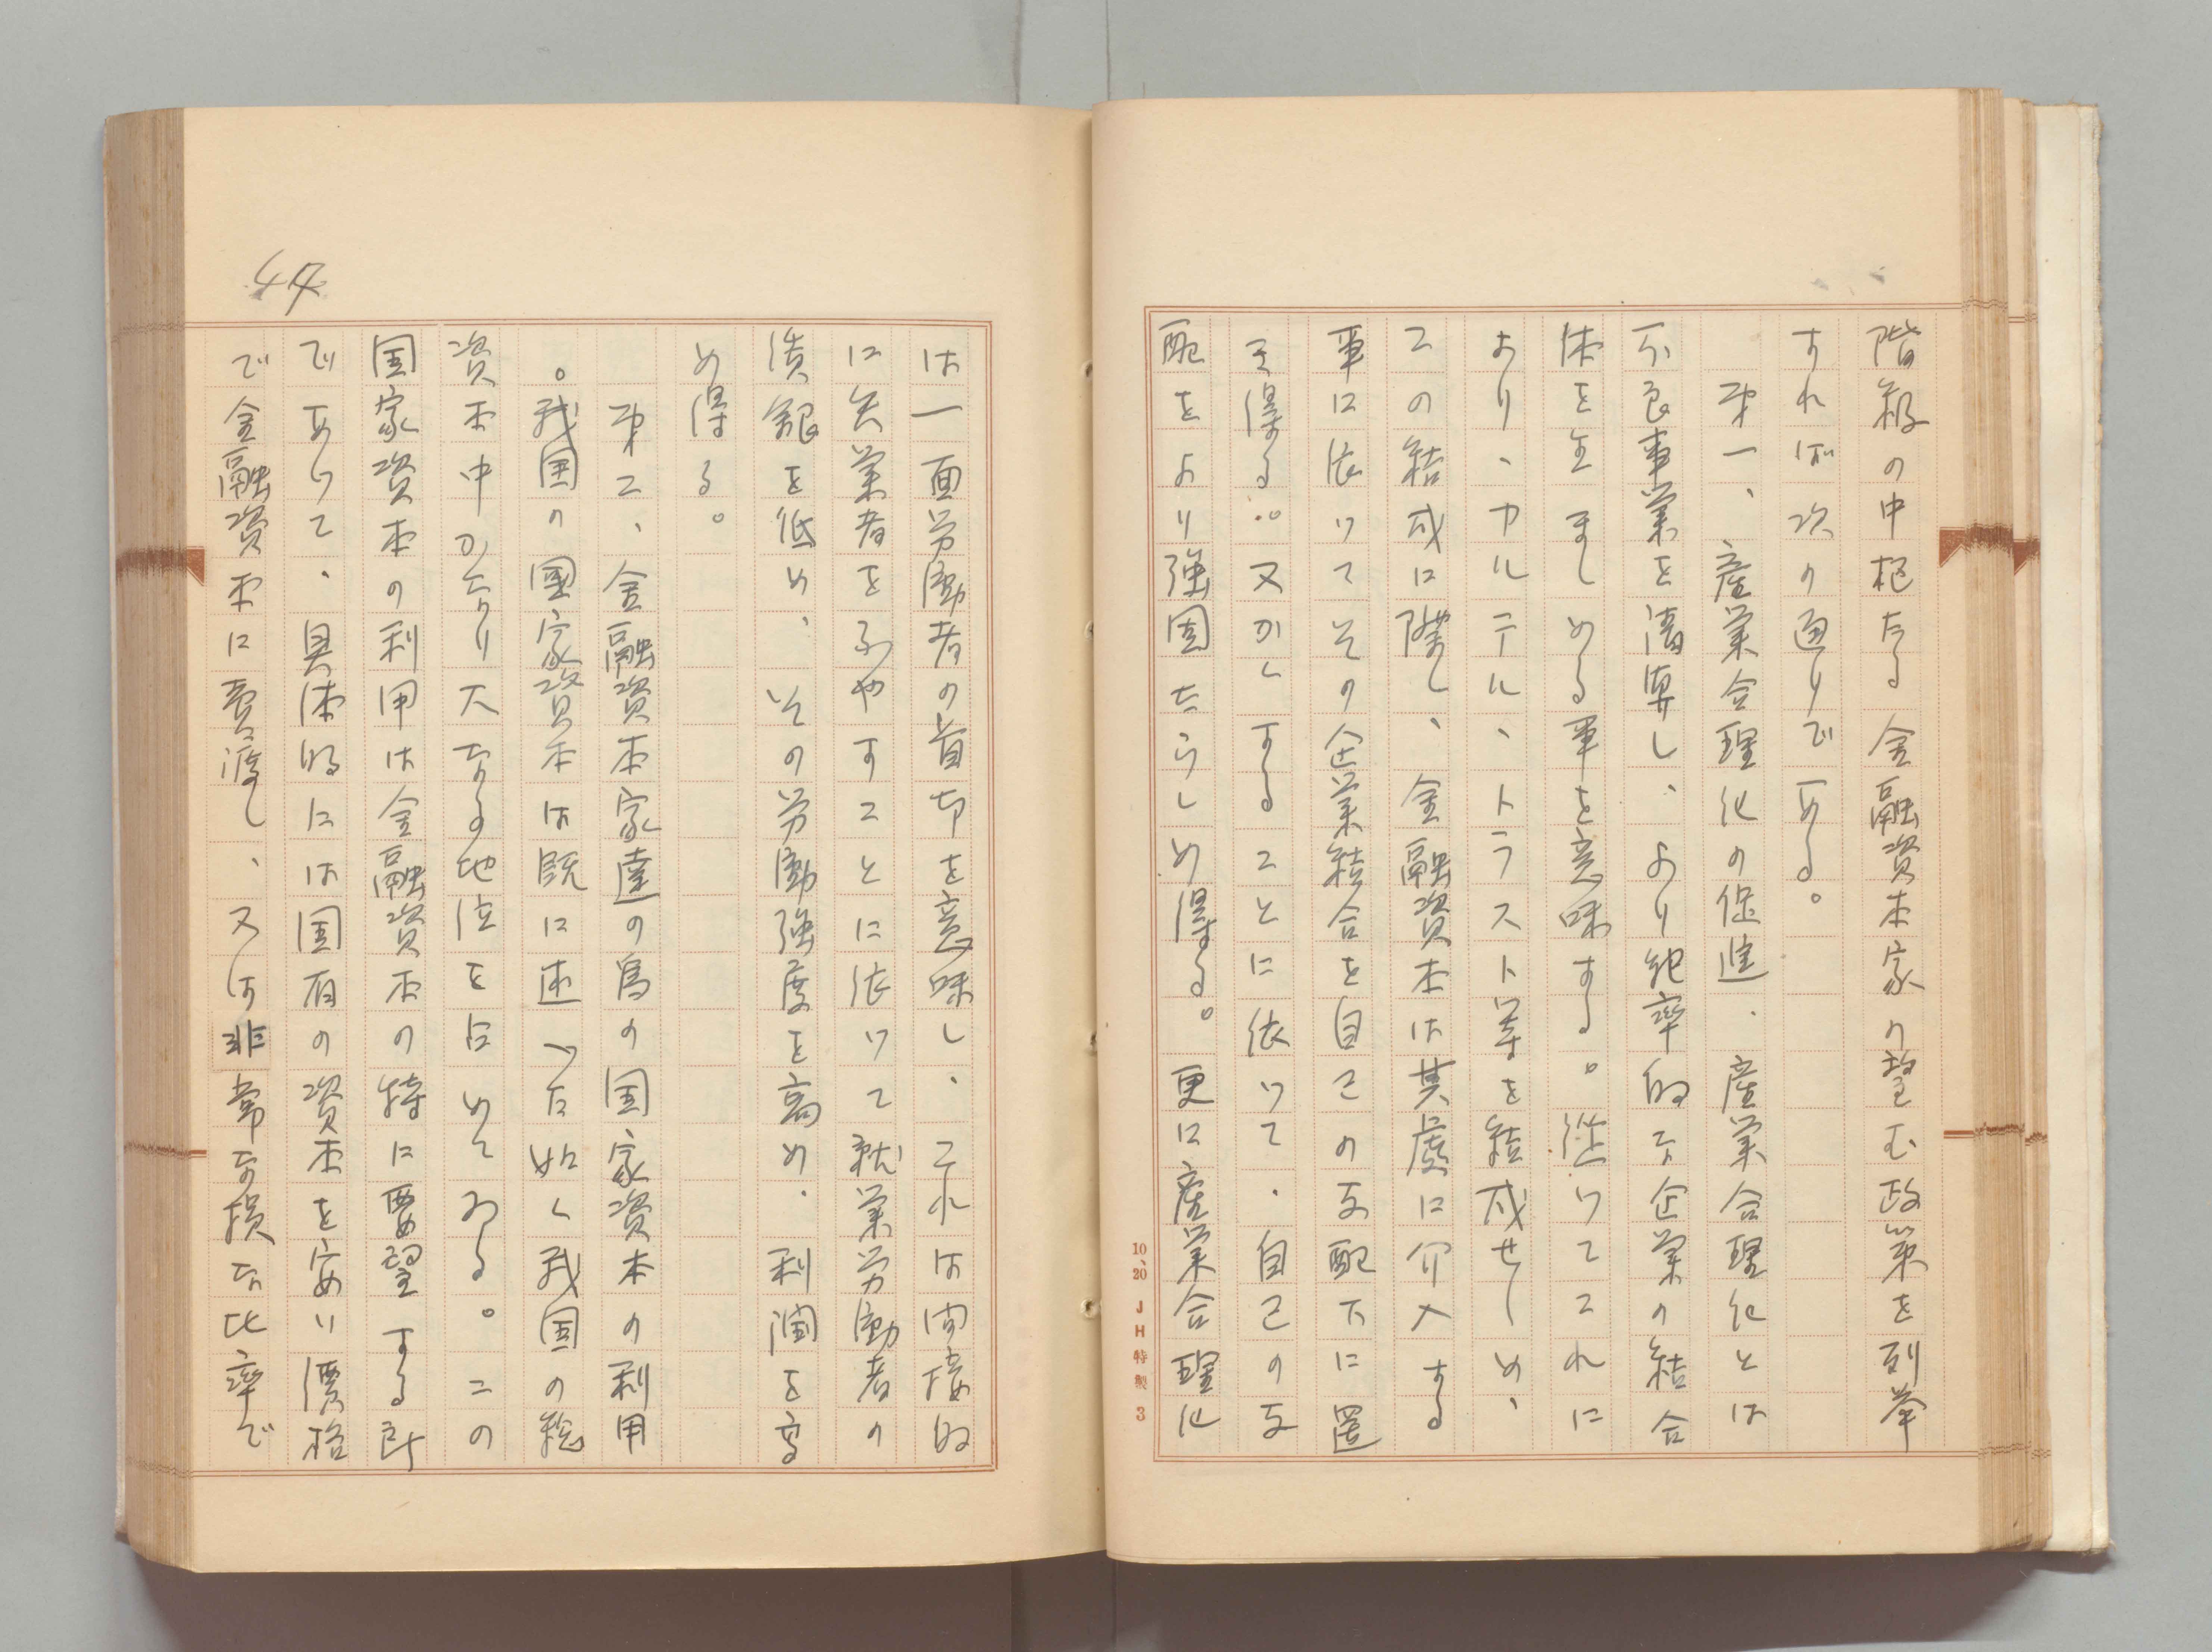 階級の中枢たる金融資本家の望む政策を列挙
すれば次の通りである。
第一、産業合理化の促進、産業合理化とは
不良事業を清算し、より能率的な企業の結合
体を生ましめる事を意味する。従つてこれに
より、カルテル、トラスト等を結成せしめ、
この結成に際し、金融資本は其處に介入する
事に依つてその企業結合を自己の支配下に置
き得る。又かくすることに依つて、自己の支
配をより強固たらしめ得る。更に産業合理化
10、20 JH特製 3
は一面労働者の首切を意味し、これは間接的
に失業者をふやすことに依つて就業労働者の
賃銀を低め、その労働強度を高め、利潤を高
め得る。
第二、金融資本家達の為の国家資本の利用
。我国の國家資本は既に述べた如く我国の総
資本中かなり大なる地位を占めてゐる。この
国家資本の利用は金融資本の特に要望する所
であつて、具体的には国有の資本を安い價格
で金融資本に賣渡し、又は非常な損な比率で
47